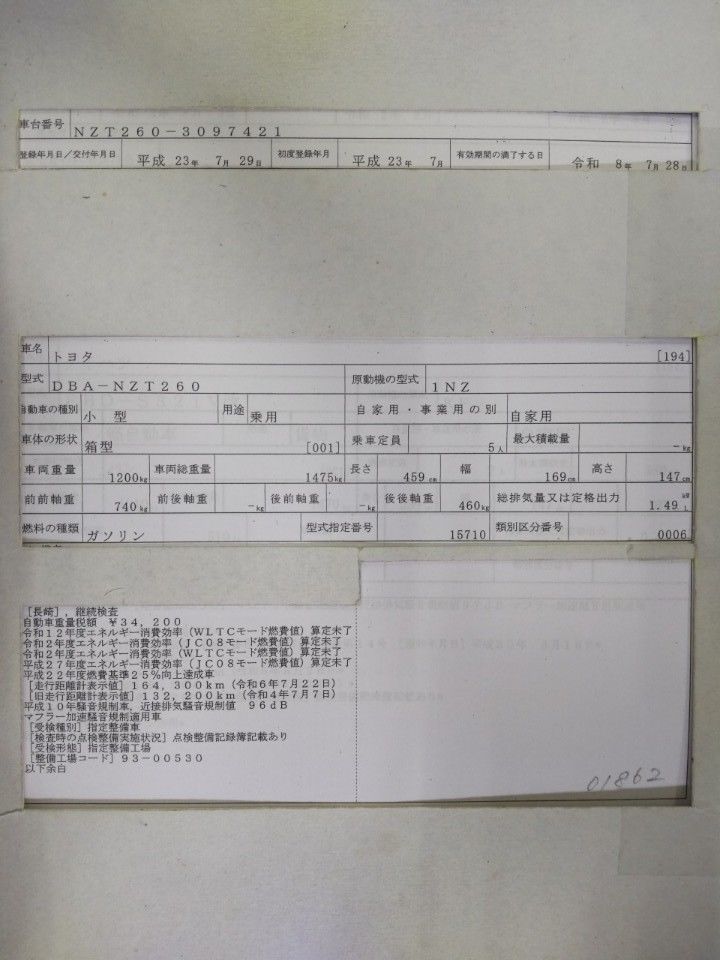 車台番号 NZT260-3097421
登録年月日/交付年月日 平成 23年 7月 29日 初度登録年月 平成 23年 7月 有効期間の満了する日 令和 8年 7月 28日
車名 トヨタ [194]
型式 DBA-NZT260 原動機の型式 1NZ
自動車の種別 小 型 用途 乗用 自家用・事業用の別 自家用
車体の形状 箱型 [001] 乗車定員 5人 最大積載量 -kg
車両重量 1200kg 車両総重量 1475kg 長さ 459cm 幅 169cm 高さ 147cm
前前軸重 740kg 前後軸重 -kg 後前軸重 -kg 後後軸重 460kg 総排気量又は定格出力 1.49 kW L
燃料の種類 ガソリン 型式指定番号 15710 類別区分番号 0006
[長崎],継続検査
自動車重量税額 ¥34,200
令和12年度エネルギー消費効率(WLTCモード燃費値)算定未了
令和2年度エネルギー消費効率(JC08モード燃費値)算定未了
令和2年度エネルギー消費効率(WLTCモード燃費値)算定未了
平成27年度エネルギー消費効率(JC08モード燃費値)算定未了
平成22年度燃費基準25%向上達成車
[走行距離計表示値]164,300km(令和6年7月22日)
[旧走行距離計表示値]132,200km(令和4年7月7日)
平成10年騒音規制車,近接排気騒音規制値 96dB
マフラー加速騒音規制適用車
[受検種別]指定整備車
[検査時の点検整備実施状況]点検整備記録簿記載あり
[受検形態]指定整備工場
[整備工場コード]93-00530
以下余白
01862